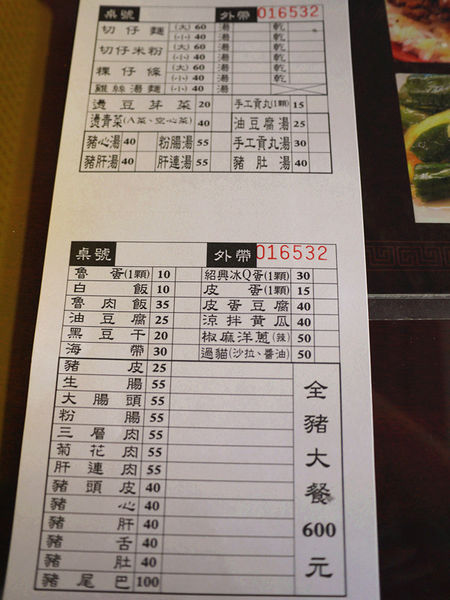 桌號 外帶 016532
切仔麵 (大) 60 湯 乾
(小) 40 湯 乾
切仔米粉 (大) 60 湯 乾
(小) 40 湯 乾
粿仔條 (大) 60 湯 乾
(小) 40 湯 乾
雞絲湯麵 40 湯
燙豆芽菜 20 手工貢丸(1顆) 15
燙青菜(A菜、空心菜) 40 油豆腐湯 25
豬心湯 40 粉腸湯 55 手工貢丸湯 30
豬肝湯 40 肝連湯 55 豬肚湯 40
桌號 外帶 016532
魯蛋(1顆) 10 紹興冰Q蛋(1顆) 30
白飯 10 皮蛋(1顆) 15
魯肉飯 35 皮蛋豆腐 40
油豆腐 25 涼拌黃瓜 40
黑豆干 20 椒麻洋蔥(辣) 50
海帶 30 過貓(沙拉、醬油) 50
豬皮 25
生腸 55
大腸頭 55
粉腸 55
三層肉 55
菊花肉 55
肝連肉 55
豬頭皮 40
豬心 40
豬肝 40
豬舌 40
豬肚 40
豬尾巴 100
全豬大餐600元